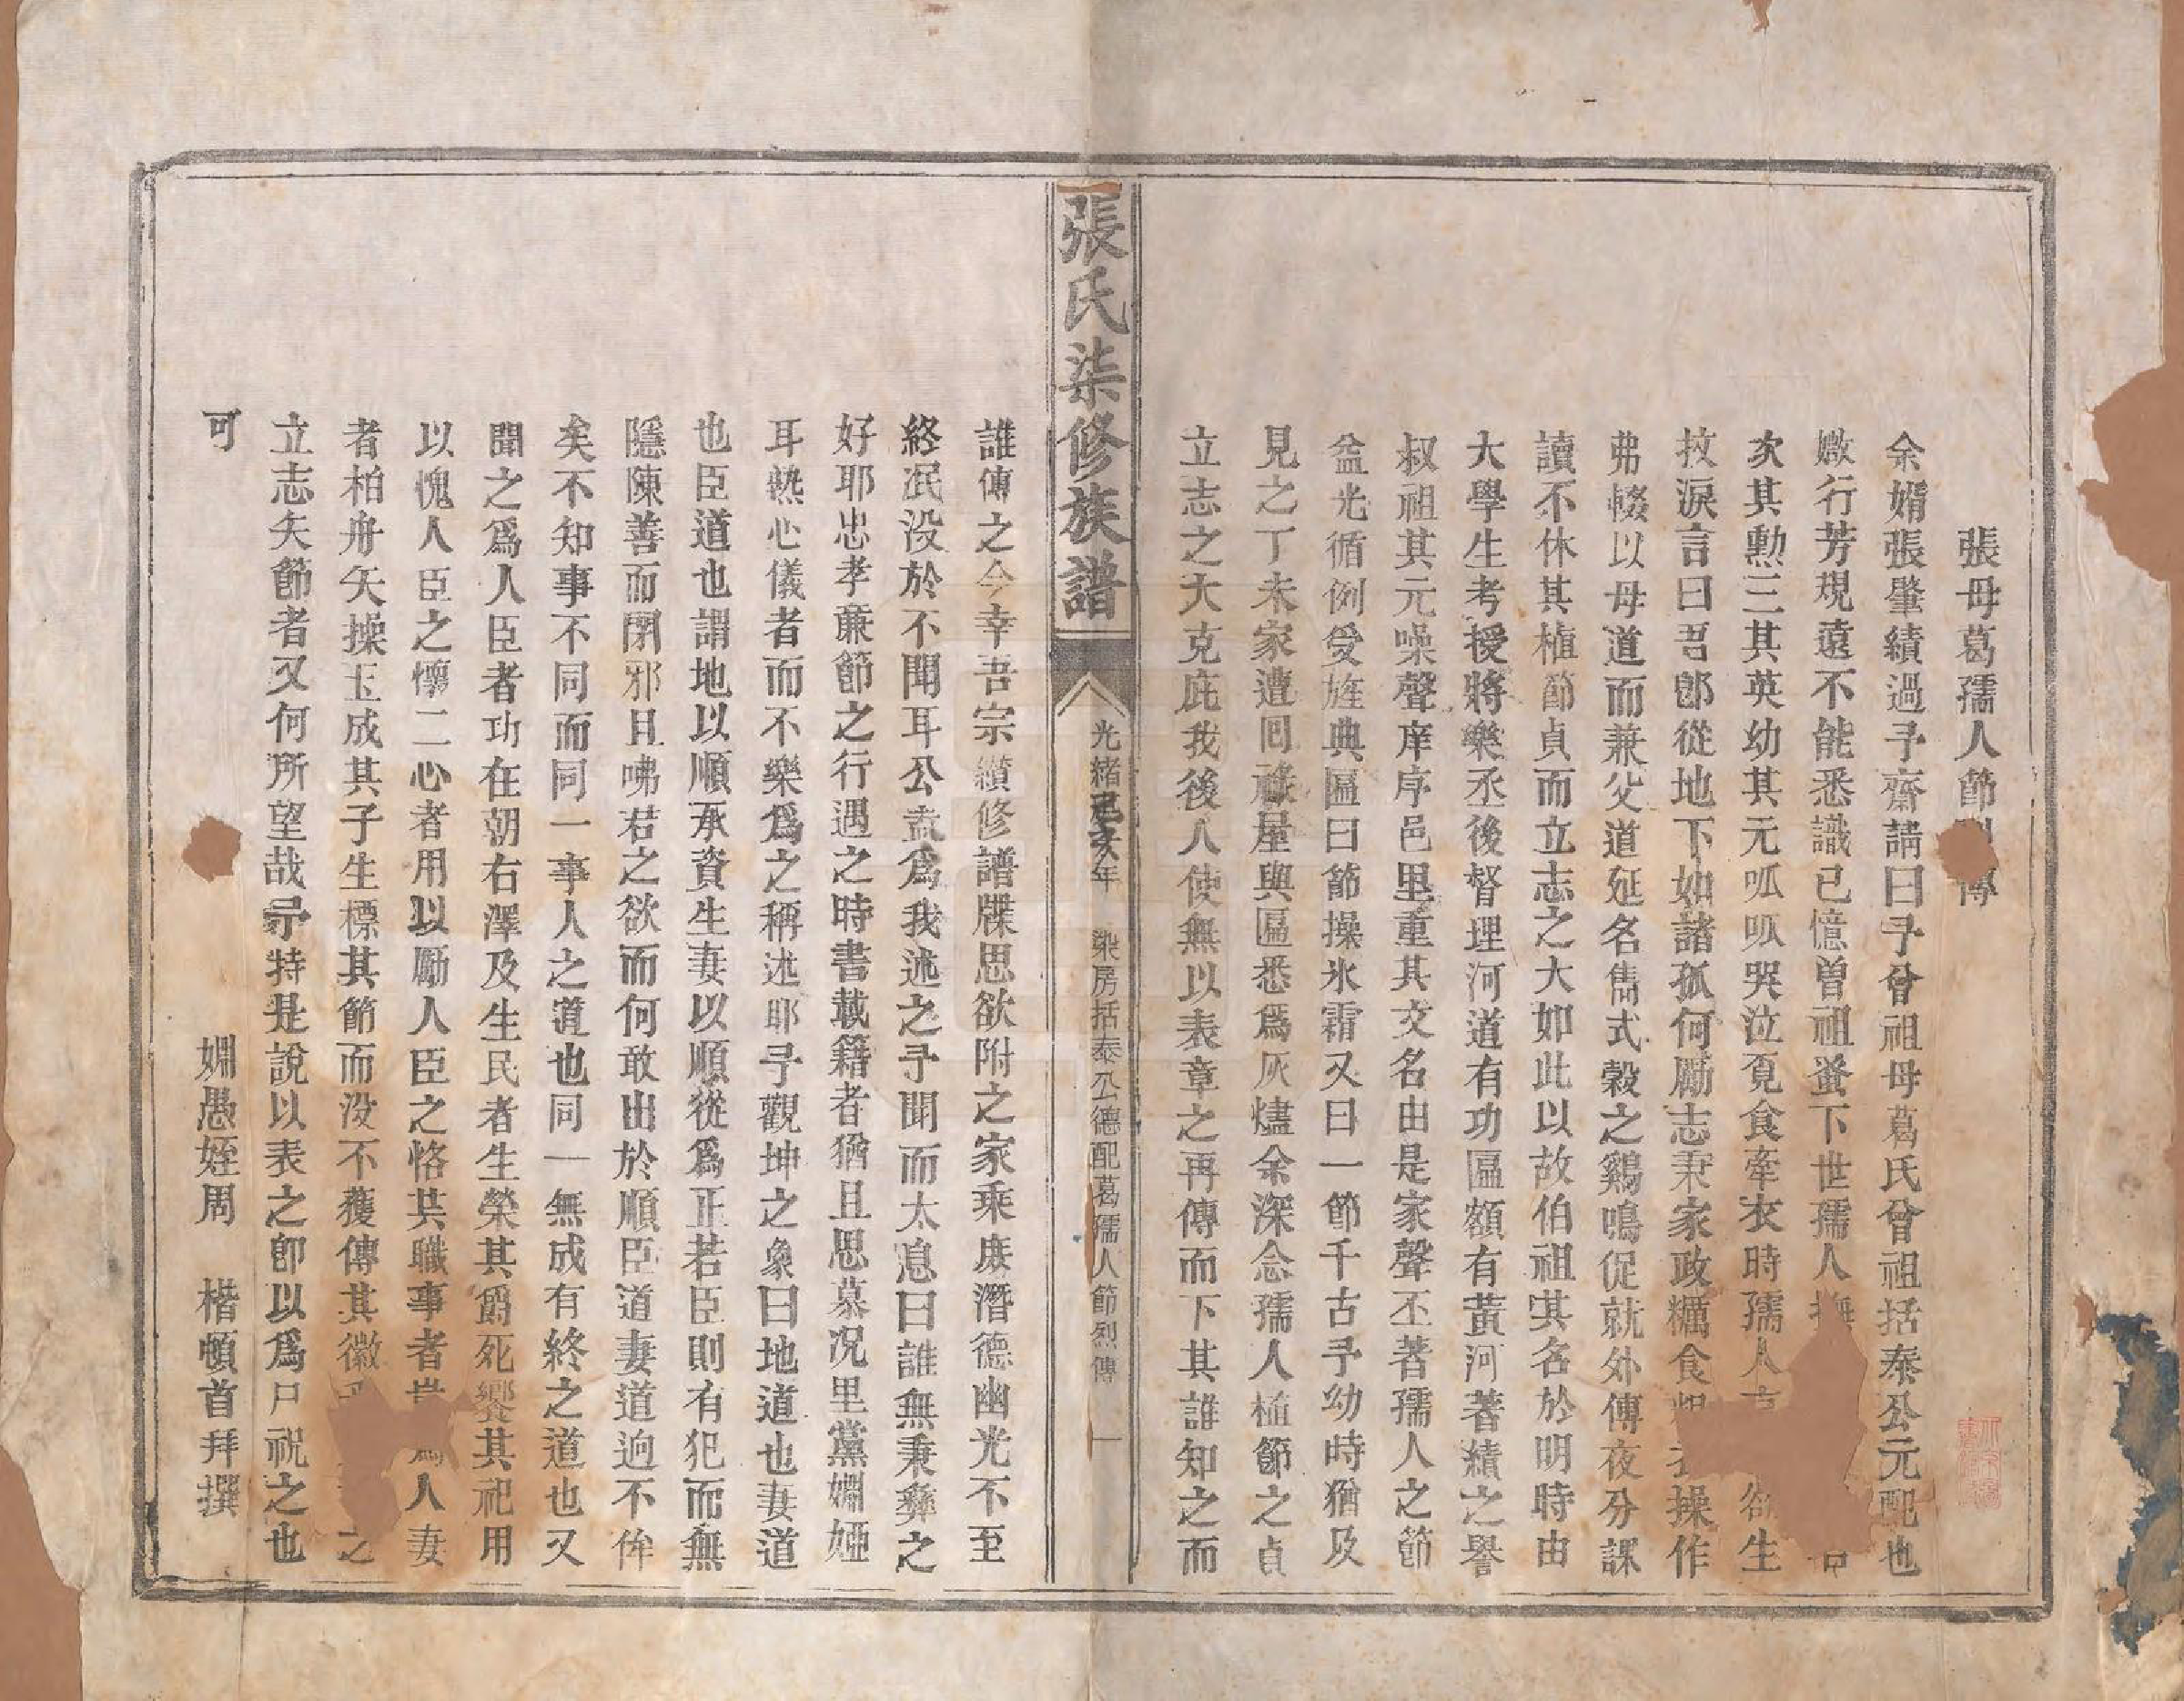 張母葛孺人節傳
余婿張肇績過予齋請曰予曾祖母葛氏曾祖括泰公元配也
嫰行芳規遠不能悉識已憶曾祖蚤下世孺人
次其勲三其英幼其元呱呱哭泣覓食牽衣時孺人生
抆淚言曰吾郎從地下如諸孤何勵志秉家政糲食操作
弗輟以母道而兼父道延名雋式穀之鷄鳴促就外傳夜分課
讀不休其植節貞而立志之大如此以故伯祖其名於明時由
大學生考授將樂丞後督理河道有功匾額有黃河著績之譽
叔祖其元噪聲庠序邑里重其文名由是家聲丕著孺人之節
益光循例受旌典匾曰節操氷霜又曰一節千古予幼時猶及
見之丁未家遭囘祿屋與匾悉爲灰燼余深念孺人植節之貞
立志之大克庇我後人使無以表章之再傳而下其誰知之而
張氏柒修族譜
光緒己亥年 染房括泰公德配葛孺人節烈傳 一
誰傳之今幸吾宗纘修譜牒思欲附之家乘庶潛德幽光不至
終泯没於不聞耳公盍爲我述之予聞而太息曰誰無秉彝之
好耶忠孝亷節之行遇之時書載籍者猶且思慕况里黨婣婭
耳熟心儀者而不樂爲之稱述耶予觀坤之象曰地道也妻道
也臣道也謂地以順承資生妻以順從爲正若臣則有犯而無
隱陳善而閉邪且咈君之欲而何敢出於順臣道妻道迥不侔
矣不知事不同而同一事人之道也同一無成有終之道也又
聞之爲人臣者功在朝右澤及生民者生榮其爵死饗其祀用
以愧人臣之懷二心者用以勵人臣之恪其職事者爲人妻
者柏舟矢操玉成其子生標其節而没不獲傳其徽之
立志矢節者又何所望哉予特是說以表之卽以爲尸祝之也
可
婣愚姪周 楷頓首拜撰